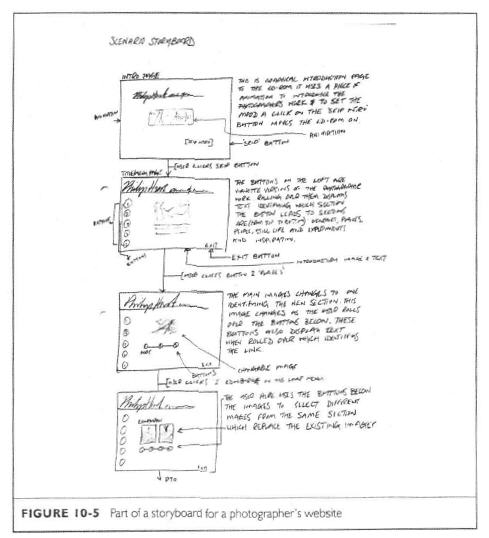 SCENARIO STORYBOARD
INTRO PAGE
THIS IS GRAPHICAL INTRODUCTION PAGE
TO THE CD-ROM IT USES A PIECE OF
ANIMATION TO INTRODUCE THE
PHOTOGRAPHERS WORK & TO SET THE
MOOD A CLICK ON THE 'SKIP INTRO'
BUTTON MOVES THE CD-ROM ON
ANIMATION
'SKIP' BUTTON
USER CLICKS SKIP BUTTON
THE BUTTONS ON THE LEFT ARE
VERSIONS OF THE PHOTOGRAPHER
WORK ROLLING OVER THEM DISPLAYS
TEXT IDENTIFYING WHICH SECTION
THE BUTTON LEADS TO SECTIONS
STILL LIFE AND
EXIT
EXIT BUTTON
BUTTONS
INTRODUCTION IMAGE & TEXT
USER CLICKS BUTTON 2 'PLACES'
THE MAIN IMAGES CHANGES TO ONE
IDENTIFYING THE NEW SECTION. THIS
IMAGE CHANGES AS THE USER ROLLS
OVER THE BUTTONS BELOW. THESE
BUTTONS ALSO DISPLAY TEXT
WHEN ROLLED OVER WHICH IDENTIFIES
THE LINK.
EXIT
CHANGEABLE IMAGE
BUTTONS
USER CLICKS
THE USER HERE USES THE BUTTONS BELOW
THE IMAGES TO SELECT DIFFERENT
IMAGES FROM THE SAME SECTION
WHICH REPLACE THE EXISTING IMAGES
PTO
FIGURE 10-5 Part of a storyboard for a photographer's website